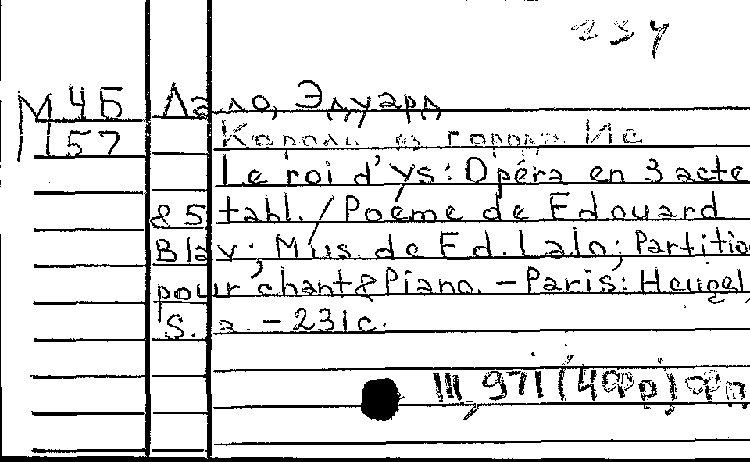 234
М45 Лало, Эдуард
П57 Король из города Ис
Le roi d'ys: Opéra en 3 acte
&5 tabl. / Poéme de Edouard
Blav; Mus. de Ed. Lalo; Partitio
pour chant & Piano. - Paris: Heugel,
S. a. - 231c.
III, 971 (4Фр) фп